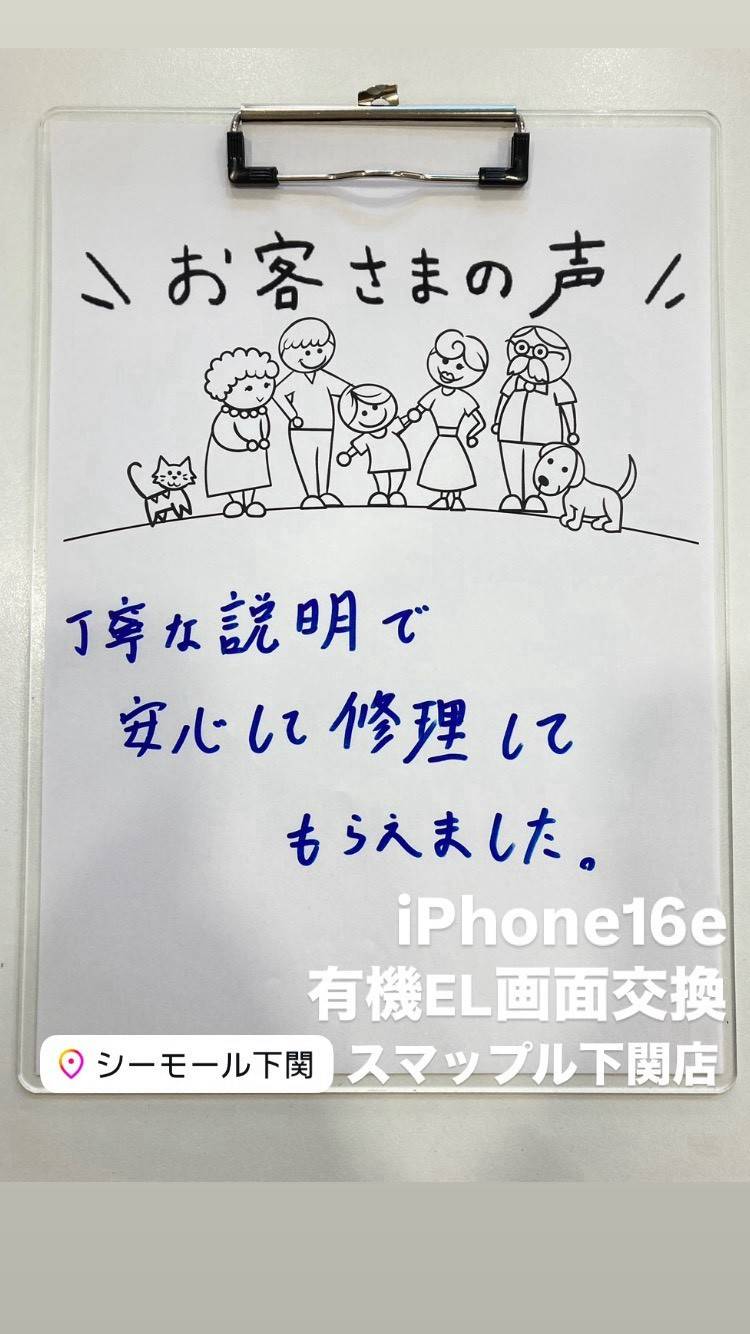 \ お客さまの声 /
丁寧な説明で
安心して修理して
もらえました。
iPhone16e
有機EL画面交換
シーモール下関
スマップル下関店